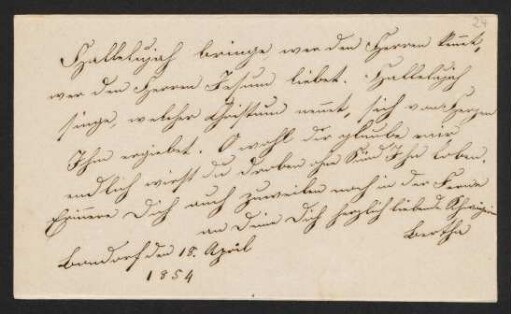 24
Hallelujah bringe, wer den Herren kennt,
wer den Herren Jesum liebet. Hallelujah
singe, welcher Christum nennet, sich von Herzen
Ihm ergiebet. O wohl dir glaube mir
endlich wirst du droben ohne Sünd Ihn loben.
Erinnere Dich auch zuweilen noch in der Ferne
an Deine Dich herzlich liebende
Berndorf den 18. April Bertha
1854